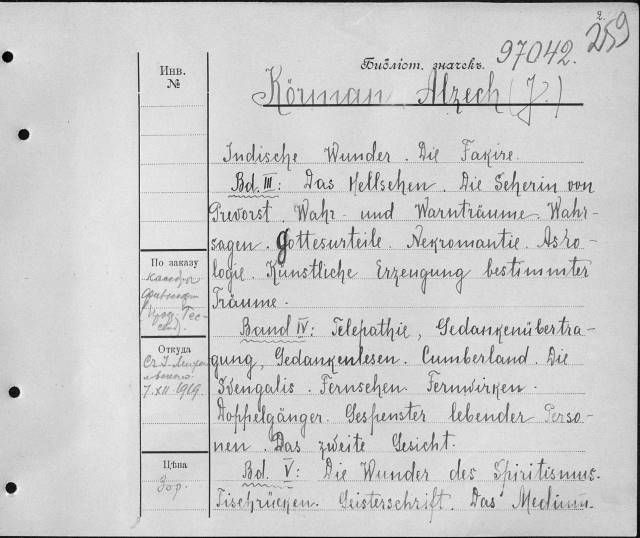 2.
259
97042.
Инв.
№
Библіот. значекъ.
Körman Alzech (J)
Indische Wunder. Die Fakire.
Bd. III: Das Hellsehen. Die Seherin von
Prevorst. Wahr- und Warnträume. Wahr-
sagen. Gottesurteile. Nekromantie. Astro-
logie. Künstliche Erzeugung bestimmter
Träume.
Band IV: Telepathie, Gedankenübertra-
gung, Gedankenlesen. Cumberland. Die
Svengalis. Fernsehen. Fernwirken.
Doppelgänger. Gespenster lebender Perso-
nen. Das zweite Gesicht.
Bd. V: Die Wunder des Spiritismus.
Tischrücken. Geisterschrift. Das Medium-
По заказу
(проф. Гес-
сена).
Откуда
7.XII.1919.
Цѣна